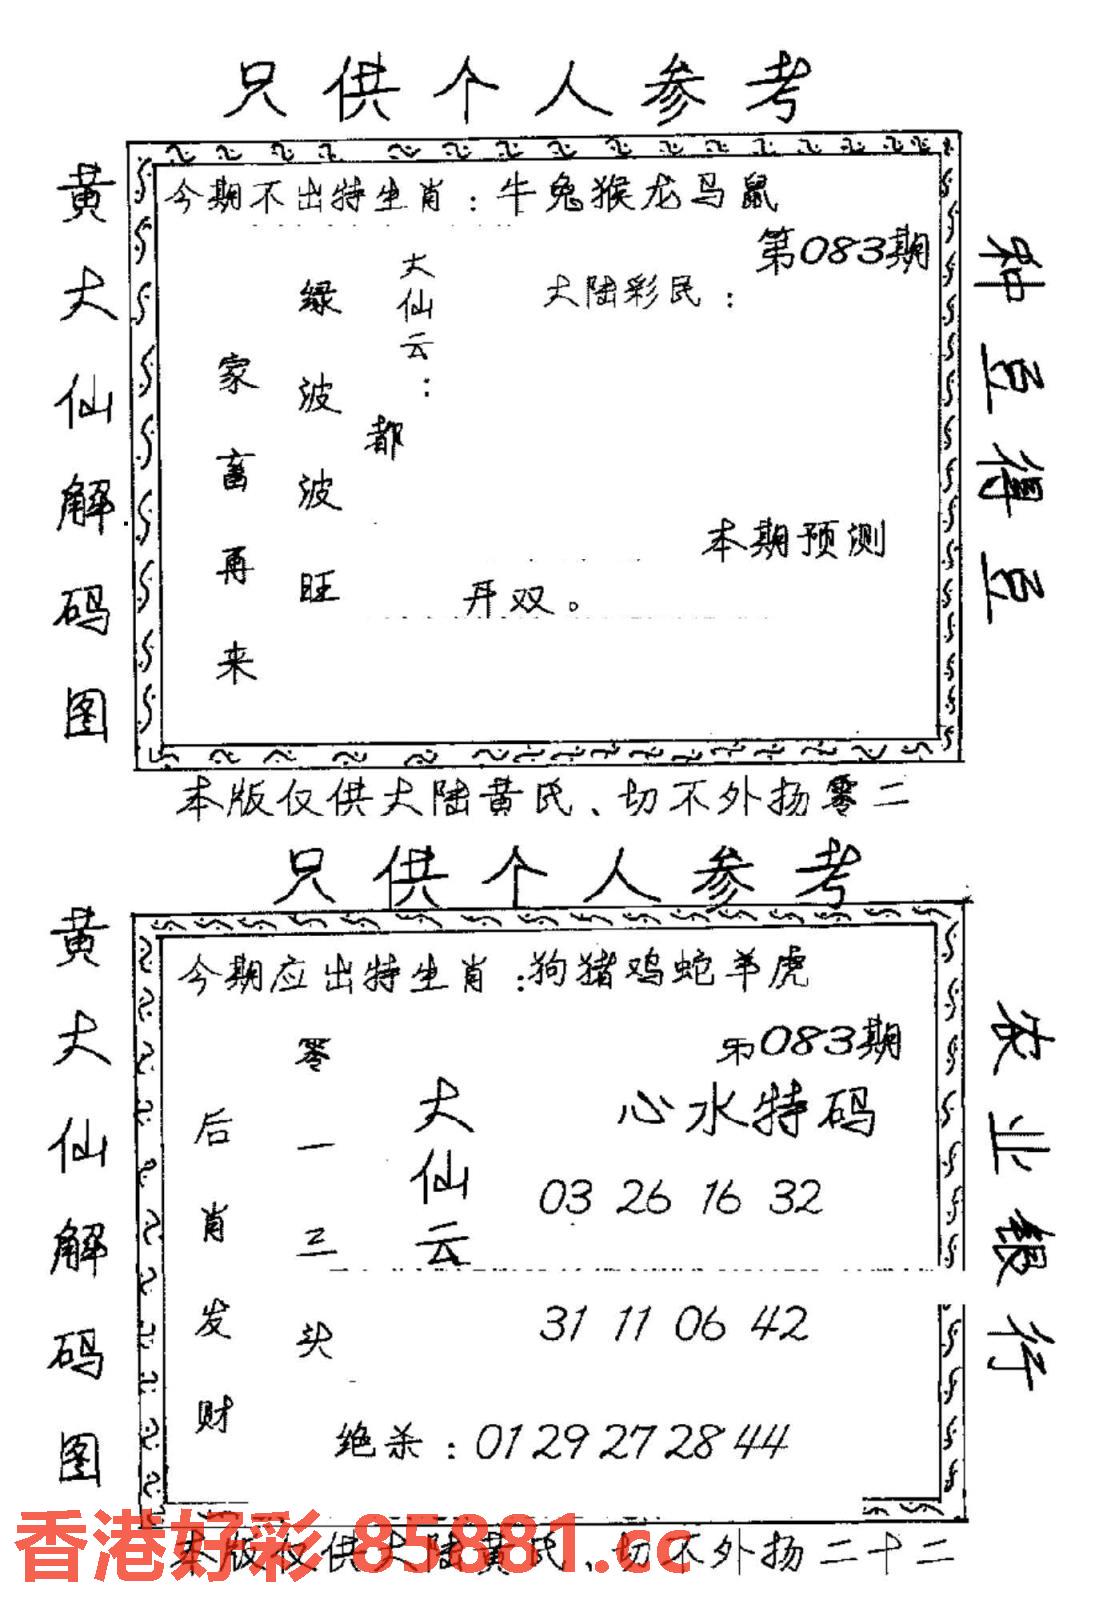 只供个人参考
黄大仙解码图
今期不出特生肖：牛兔猴龙马鼠
第083期
大陆彩民：
大仙云：
都
绿波波旺
家畜再来
本期预测
开双。
种豆得豆
本版仅供大陆黄氏、切不外扬零二
只供个人参考
黄大仙解码图
今期应出特生肖：狗猪鸡蛇羊虎
083期
心水特码
大仙云
03 26 16 32
31 11 06 42
零一三头
后肖发财
绝杀：01 29 27 28 44
农业银行
本版仅供大陆黄氏、切不外扬二十二
香港好彩 85881.cc